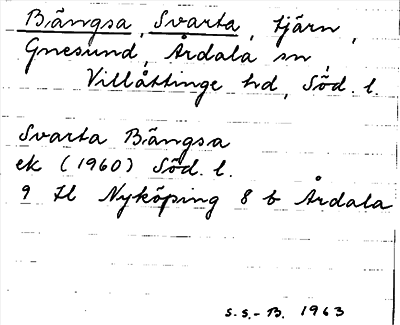 Bängsa, Svarta, tjärn,
Gnesund, Årdala sn,
Villåttinge hd, Söd. l.
Svarta Bängsa
ek (1960) Söd. l.
9 H Nyköping 8 b Årdala
S.S.-B. 1963